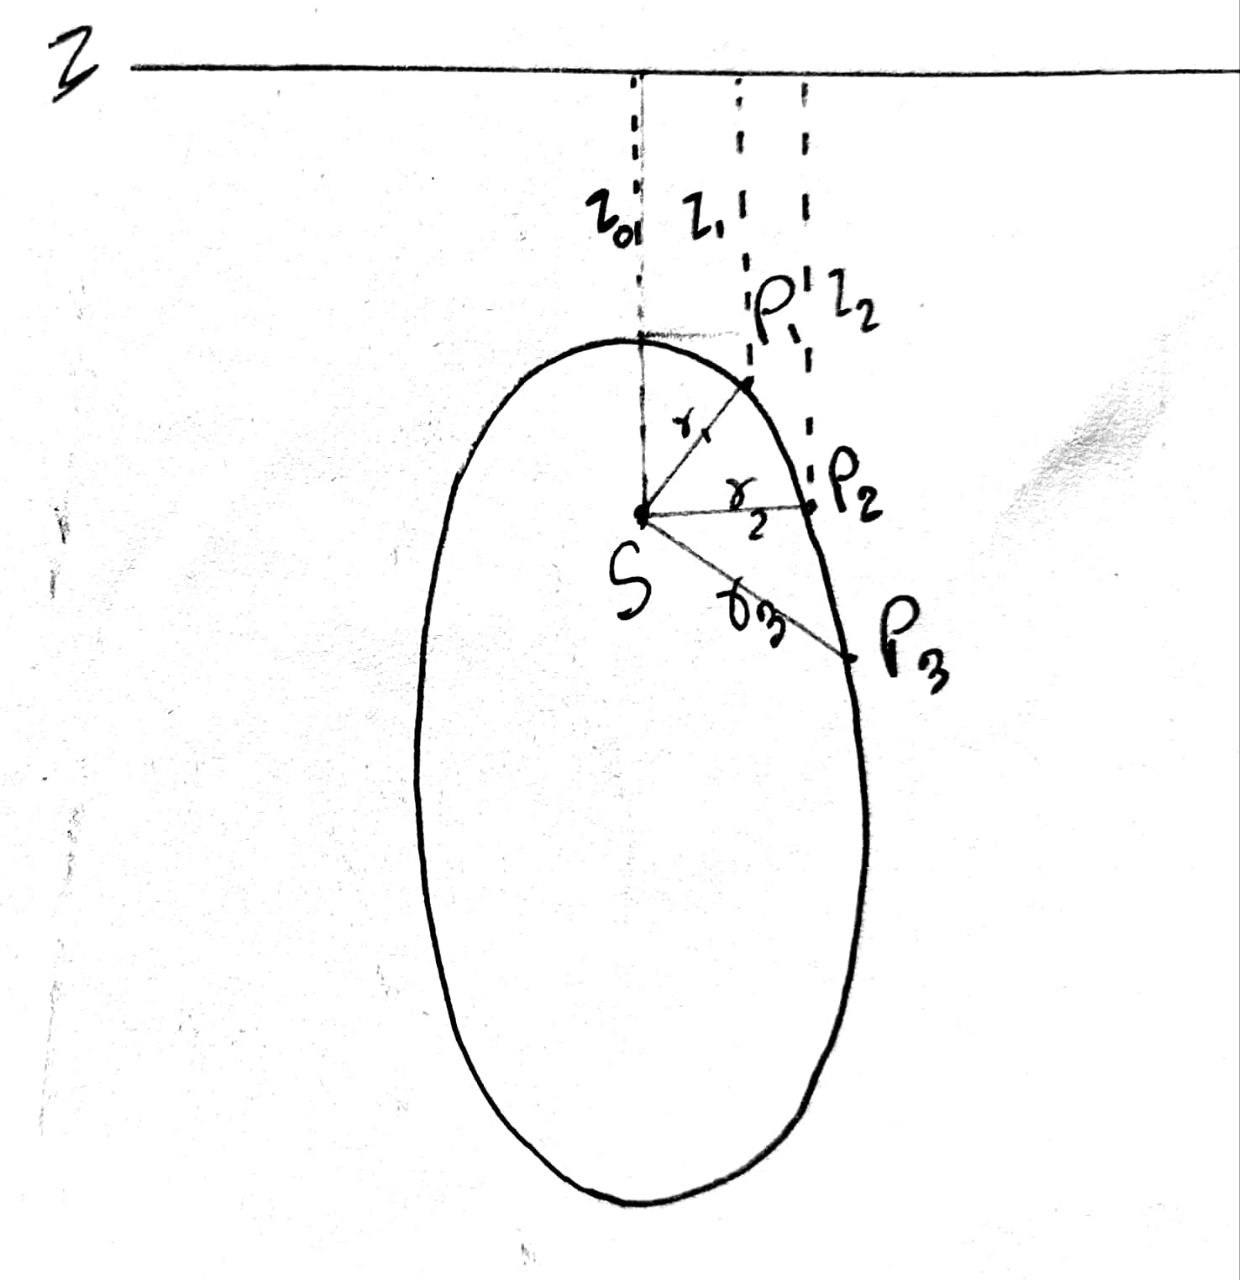 Z
Z₀ Z₁
P₁ Z₂
r₁
r₂ P₂
S
r₃ P₃